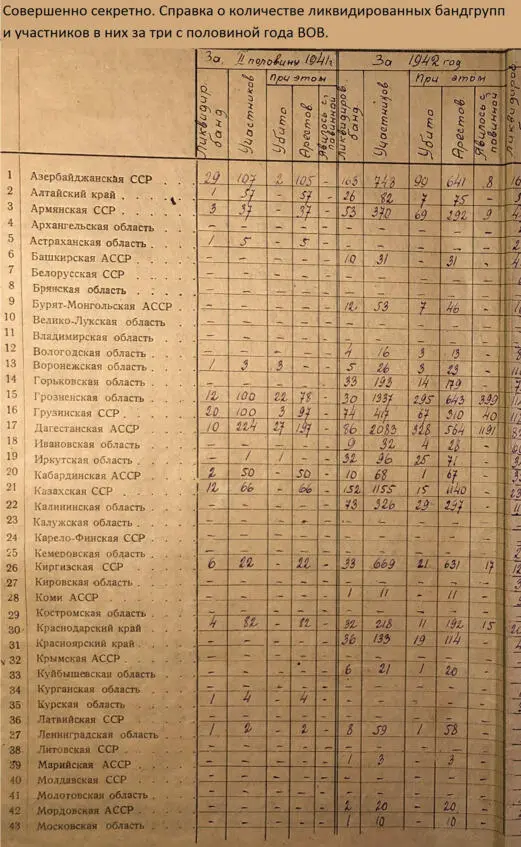 Совершенно секретно. Справка о количестве ликвидированных бандгрупп
и участников в них за три с половиной года ВОВ.
За II половину 1941г. За 1942 год
При этом При этом
Ликвидир. банд Участников Убито Арестов. Явилось с повинной Ликвидиров. банд Участников Убито Арестов. Явилось с повинной Ликвидиров.
1 Азербайджанская ССР 29 107 2 105 - 103 748 99 641 8 16
2 Алтайский край 1 57 - 57 - 26 82 7 75 -
3 Армянская ССР 3 37 - 37 - 53 370 69 292 9
4 Архангельская область - - - - - - - - - -
5 Астраханская область 1 5 - 5 - - - - - -
6 Башкирская АССР - - - - - 10 31 - 31 -
7 Белорусская ССР - - - - - - - - - -
8 Брянская область - - - - - - - - - -
9 Бурят-Монгольская АССР - - - - - 12 53 7 46 -
10 Велико-Лукская область - - - - - - - - - -
11 Владимирская область - - - - - - - - - -
12 Вологодская область - - - - - 4 16 3 13 -
13 Воронежская область 1 3 3 - - 5 26 3 23 -
14 Горьковская область - - - - - 33 193 14 179 -
15 Грозненская область 12 100 22 78 - 30 1337 295 643 399
16 Грузинская ССР 20 100 3 97 - 74 417 67 310 40
17 Дагестанская АССР 10 224 27 197 - 86 2083 328 564 1191
18 Ивановская область - - - - - 9 32 4 28 -
19 Иркутская область - 1 1 - - 32 96 25 71 -
20 Кабардинская АССР 2 50 - 50 - 10 68 1 67 -
21 Казахская ССР 12 66 - 66 - 152 1155 15 1140 -
22 Калининская область - - - - - 73 326 29 297 -
23 Калужская область - - - - - - - - - -
24 Карело-Финская ССР - - - - - - - - - -
25 Кемеровская область - - - - - - - - - -
26 Киргизская ССР 6 22 - 22 - 33 669 21 631 17
27 Кировская область - - - - - - - - - -
28 Коми АССР - - - - - 1 11 - 11 -
29 Костромская область - - - - - - - - - -
30 Краснодарский край 4 82 - 82 - 32 218 11 192 15
31 Красноярский край - - - - - 36 133 19 114 -
32 Крымская АССР - - - - - - - - - -
33 Куйбышевская область - - - - - 6 21 1 20 -
34 Курганская область - - - - - - - - - -
35 Курская область 1 4 - 4 - - - - - -
36 Латвийская ССР - - - - - - - - - -
27 Ленинградская область 1 2 - 2 - 8 59 1 58 -
38 Литовская ССР - - - - - - - - - -
39 Марийская АССР - - - - - 1 3 - 3 -
40 Молдавская ССР - - - - - - - - - -
41 Молотовская область - - - - - - - - - -
42 Мордовская АССР - - - - - 2 20 - 20 -
43 Московская область - - - - - 1 10 - 10 -